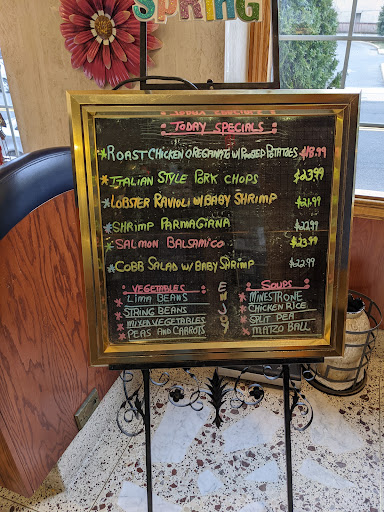 SPRING
TODAY SPECIALS
TODAY SPECIALS
ROAST CHICKEN OREGANATO W/ ROASTED POTATOES $18.99
ITALIAN STYLE PORK CHOPS $23.99
LOBSTER RAVIOLI W BABY SHRIMP $21.99
SHRIMP PARMAGIANA $22.99
SALMON BALSAMICO $23.99
COBB SALAD W/ BABY SHRIMP $22.99
VEGETABLES
LIMA BEANS
STRING BEANS
MIXED VEGETABLES
PEAS AND CARROTS
ENJOY
SOUPS
MINESTRONE
CHICKEN RICE
SPLIT PEA
MATZO BALL